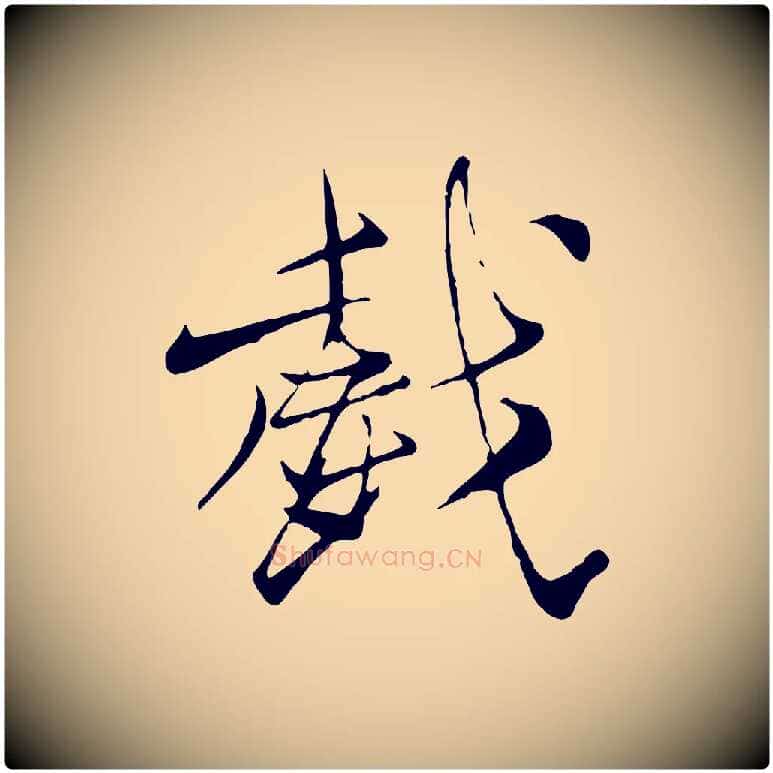 戲
Shufawang.CN